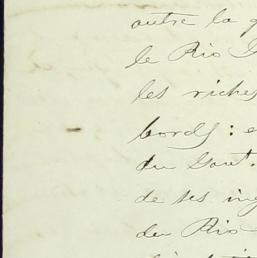 outre la
le Rio
les riches
bords : e
du Gouv.
de ses ing
du Rio